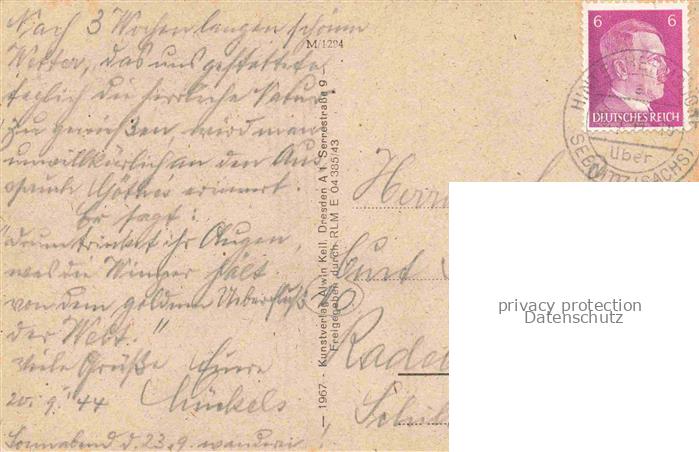 Nach 3 Wochen langen schönen
Wetter, das uns gestattete
täglich die herrliche Natur
zu genießen, wird man
unwillkürlich an den Aus-
spruch Göthes erinnert.
Er sagt:
"Drum trinket ihr Augen,
was die Wimper hält
von dem goldnen Ueberfluß
der Welt."
Viele Grüße Eure
20. 9. 44
Sonnabend d. 23.9.
M/1294
— 1967 - Kunstverlag Alwin Keil, Dresden A 1, Serrestraße 9 —
Freigegeben durch RLM E 04385/43
6 6
DEUTSCHES REICH
über
SEBNITZ (SACHS)
Herrn
Kurt
privacy protection
Datenschutz